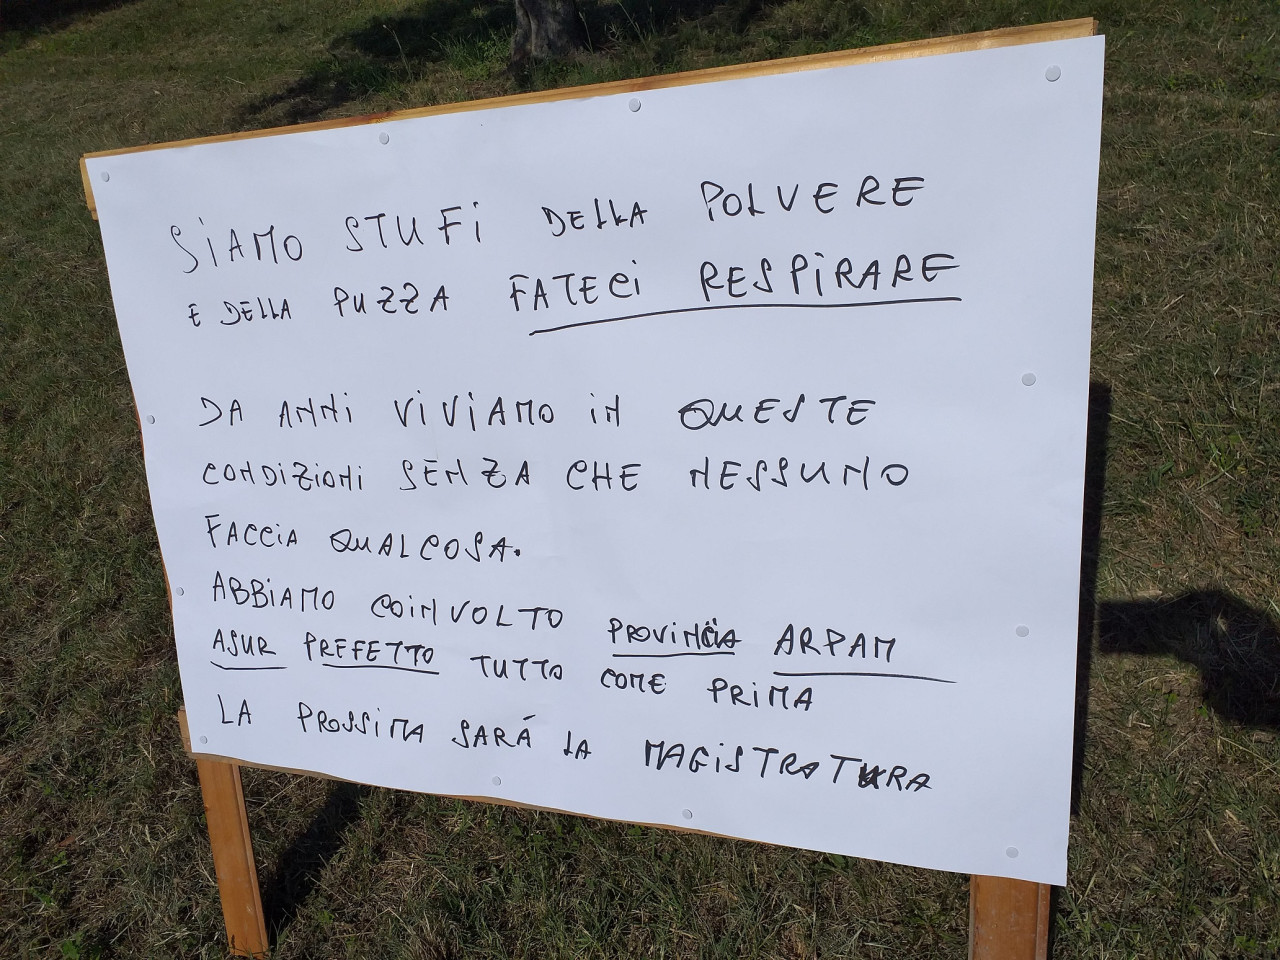 SiAMO STUFi DELLA POLVERE
E DELLA PUZZA FATECi RESPiRARE
DA ANNi ViViAMO iN QUESTE
CONDiZiONi SENZA CHE NESSUNO
FACCiA QUALCOSA.
ABBiAMO COiNVOLTO PROViNCiA ARPAM
ASUR PREFETTO TUTTO COME PRiMA
LA PROSSiMA SARÁ LA MAGiSTRATURA